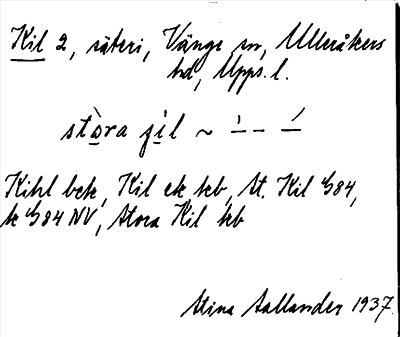 Kil 2, säteri, Vänge sn, Ulleråkers
hd, Upps. l.
stòra
Kihl betc, Kil ek tcb, St. Kil G84,
G84 NV, Stora Kil tcb
Stina Sallander 1937.